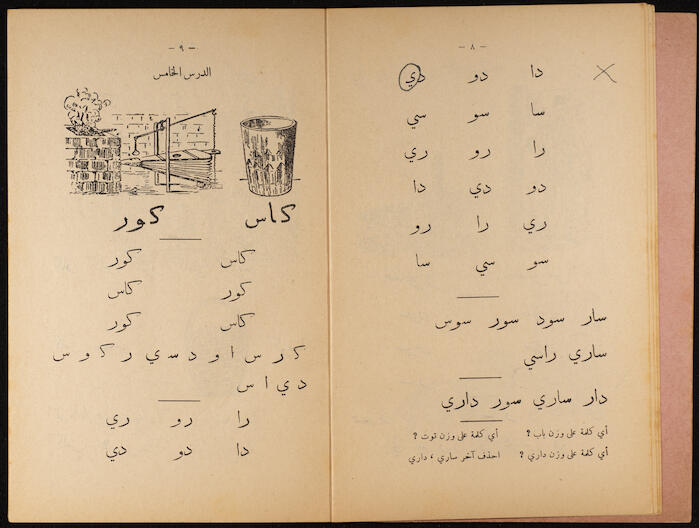 - ٨ -
دا دو دي
سا سو سي
را رو ري
دو دي دا
ري را رو
سو سي سا
سار سود سور سوس
ساري راسي
دار ساري سور داري
أي كلمة على وزن باب ؟ أي كلمة على وزن توت ؟
أي كلمة على وزن داري ؟ احذف آخر ساري ، داري
- ٩ -
الدرس الخامس
كاس كور
كاس كور
كور كاس
كاس كور
ك ر س ا و د س ي ر ك و س
د ي ا س
را رو ري
دا دو دي